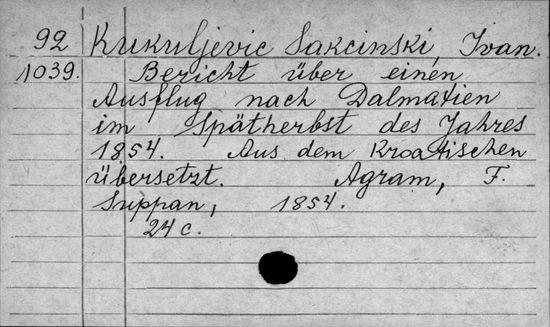 92 Kukuljevic Sakcinski, Ivan.
1039. Bericht über einen
Ausflug nach Dalmatien
im Spätherbst des Jahres
1854. Aus dem Kroatischen
übersetzt. Agram, F.
Suppan, 1854.
24 c.